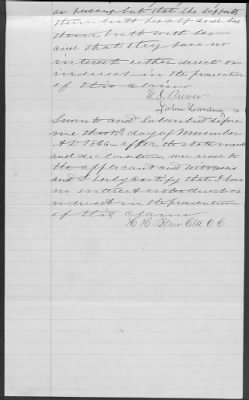 but that she supports
them both herself and has
them both with her
and that they have no
interest either direct or
indirect in the prosecution
of this claim
John Harding
Sworn to and subscribed before
me this day of November
AD 186 after the statement
and declaration was read to
the applicant and witnesses
and I hereby certify that I have
no interest either direct or
indirect in the prosecution
of this claim
H H